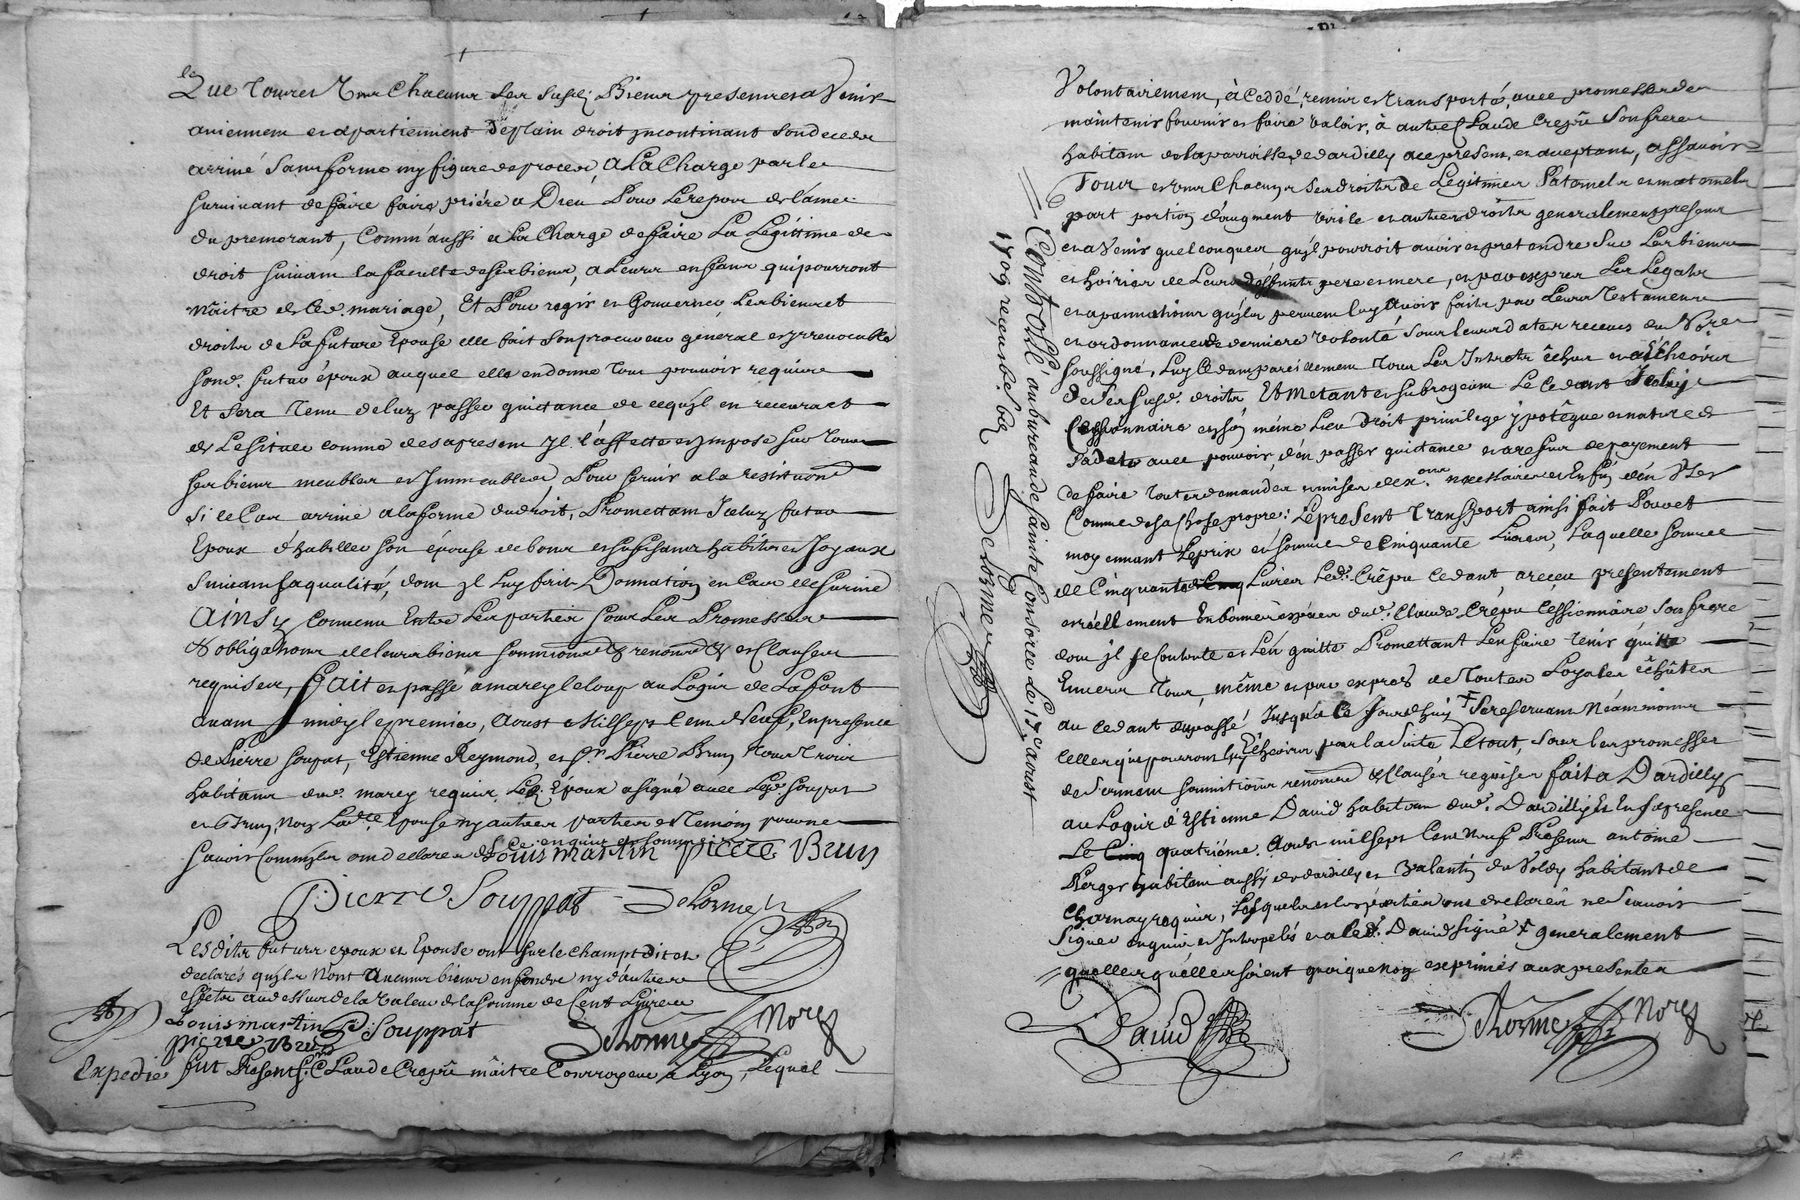 Que toures Chacuns les susd. Biens presents et a Venir
aviennent et apartiennent de plain droit incontinant son deces
arrivé sans forme ny figure de proces, A La Charge par le
survivant de faire faire prière a Dieu Pour Le repos de l'ame
du premorant, Comm'aussi a La Charge de faire La Légitime de
droit suivant la faculté de ses biens, a Leurs enfans qui pourront
naitre de Led. mariage, Et Pour regir et Gouverner Les biens et
droits de La future Epouse elle fait son procureur général et irrevocable
sond. futur époux auquel elle en donne tout pouvoir requis
Et sera tenu de luy passer quittance de ce qu'il en recevra et
de Le situer comme des apresent Il l'affecte et impose sur tous
ses biens meubles et Immeubles, Pour servir a la restitution
si le Cas arrive a la forme du droit, Promettant Iceluy futur
Epoux d'habiller son épouse de bons et suffisans habits et Joyaux
suivant sa qualité, dont Il Luy fait Donnation en Cas de survie
Ainsy Convenu Entre Les parties sous Les Promesses
obligations de leurs biens soumissions renonciations et Clauses
requises, Fait et passé a marcy le loup au Logis de La font
avant midy le premier, Aoust Mil sept Cent Neuf, En presence
de Pierre soupat, Estienne Reymond, et Sr. Pierre Brun tous trois
habitans dud. marcy requis, Led. Epoux a signé avec Led. soupat
et Brun, Non Ladte. Epouse ny autres parties et temoin pour ne
savoir Comm'ils ont declaré de ce enquis et sommés
Louis martin pierre Brun
Pierre Souppat Delorme
Lesdits futurs epoux et Epouse ont sur le champt dit et
declarés qu'ils N'ont Aucuns biens en fonds ny d'autres
effets au dessus de la valeur de la somme de Cent Livres
Louis martin P. Souppat
pierre Brun Delorme Nore
Expedié fut Présent Sr. Claude Crepu maître Courroyeur a Lyon, Lequel
Volontairement, à Ceddé, remis et transporté, avec promesse de
maintenir fournir et faire valoir, à autre Claude Crepu Son frere
habitant de la parroisse de dardilly a ce present, et aceptant, assavoir
Tous et uns Chacuns Ses droits de Legitimes Paternels et maternels
part portion d'augment virile et autres droits generalement presens
et a venir quelconques qu'il pourroit avoir et pretendre sur Les biens
et hoiries de Leurs deffunts pere et mere, et par exprès Les Legats
et ordonnances de derniere volonté sous leurs dates receues du Nore
soussigné, Luy Cedant pareillement tous Les Interets échus et a Echeoir
de Ses susd. droits Et Metant et subrogeant Le Cedant Iceluy
Cessionnaire en son même Lieu droit privilege ypotêque et nature de
sa dete avec pouvoir d'en passer quittance et a ce sur de payement
de faire toutes demandes et mises dex.ons necessaires et Enfin d'en User
Comme de sa chose propre: Le present transport ainsi fait Pour et
moyennant Le prix et somme de Cinquante Livres, Laquelle somme
de Cinquante Livres Led. Crêpu Cedant a receu presentement
et réellement En bonnes especes dud. Claude Crépu Cessionnaire son frere
dont il se Contente et L'en quitte Promettant L'en faire tenir quitte
Envers tous même et par exprès de toutes Loyales echûtes
au Cedant du passé Jusqu'a Ce Jourd'huy † Se reservant Néanmoins
Celles qui pourront luy Echeoir par la Suite Le tout, sous les promesses
de serment soumissions renonciations Clauses requises fait a Dardilly
au Logis d'Estienne David habitant dud. Dardilly Et En sa presence
Le Cinq quatrième. Aoust mil sept Cent Neuf Presens antoine
Berger habitant aussi de dardilly et Valantin du Voldy habitant de
Charnay requis, Lesquels et les parties ont declarés ne scavoir
signer enquis et Interpelés et a led. David signé † generalement
quelles quelles soient quoique non exprimés aux presentes
David Delorme Nore
Controllé au bureau de sainte Consorce Le 17e aoust
1709 receu six sols
Delorme